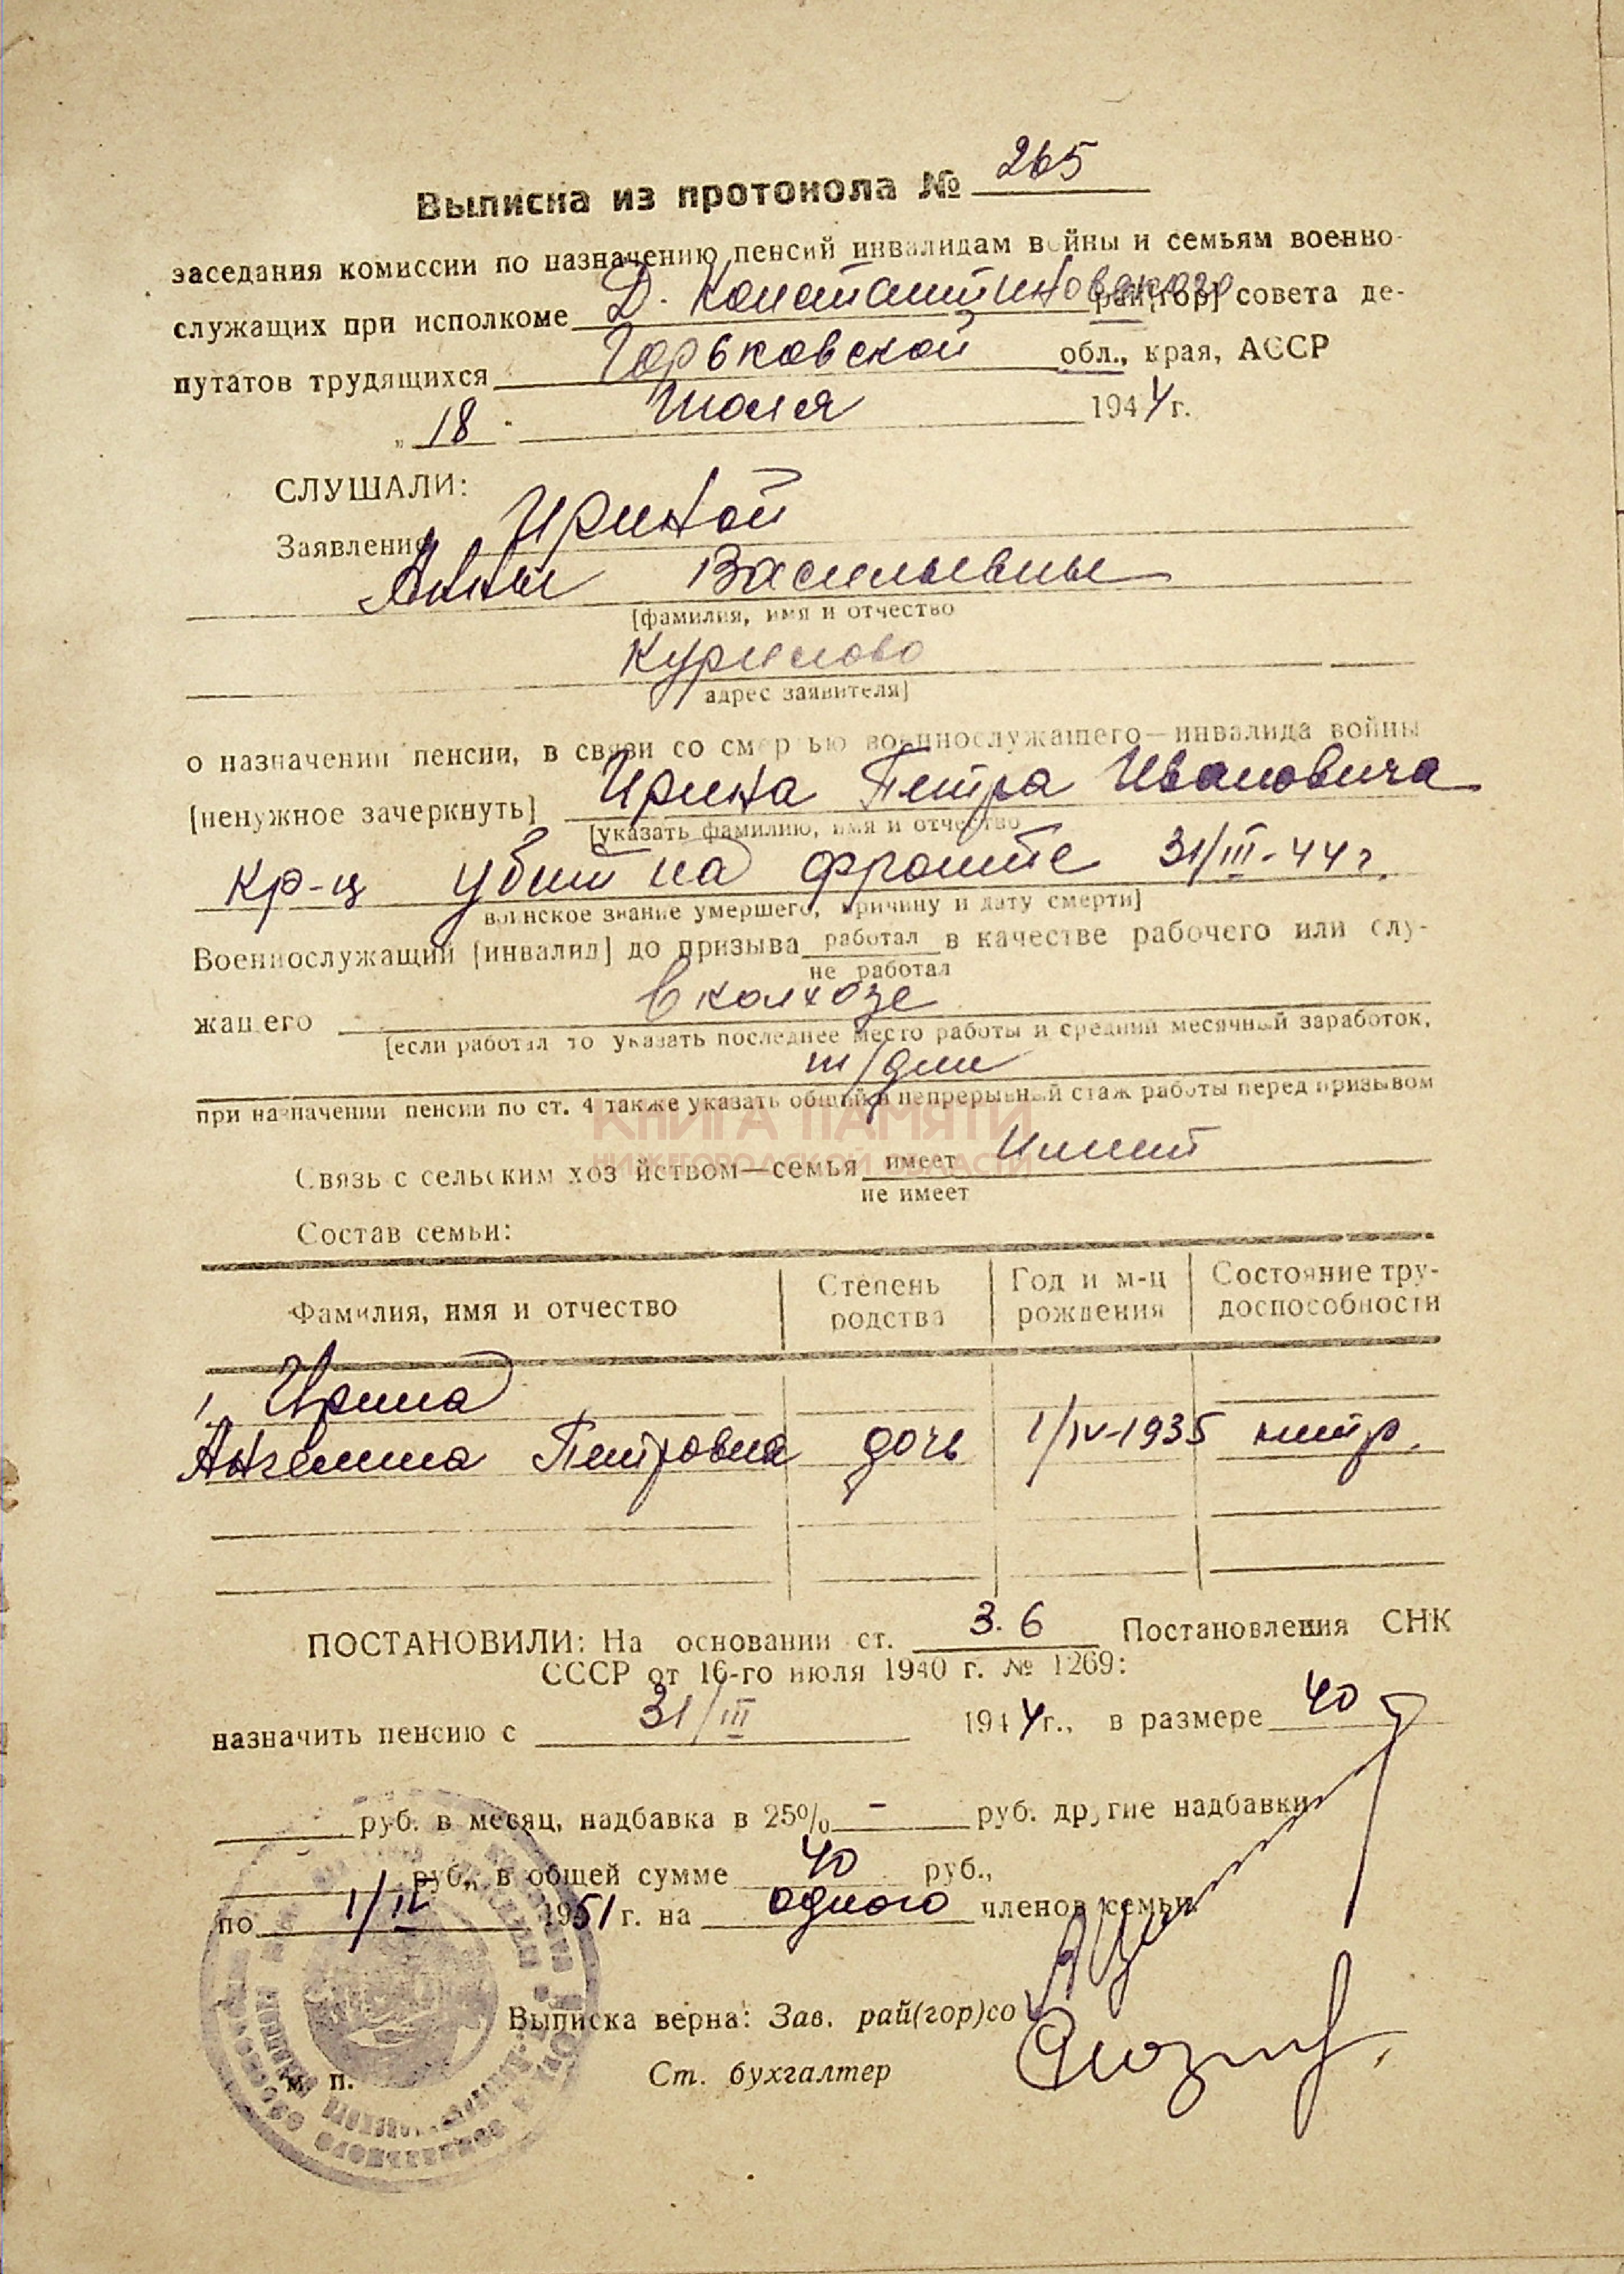 Выписка из протокола № 265
заседания комиссии по назначению пенсий инвалидам войны и семьям военно-
служащих при исполкоме Д. Константиновского рай[гор] совета де-
путатов трудящихся Горьковской обл., края, АССР
„18" Июля 1944 г.
СЛУШАЛИ:
Заявление Ириной
Анны Васильевны
[фамилия, имя и отчество
Курилово
адрес заявителя]
о назначении пенсии, в связи со смертью военнослужащего—инвалида войны
[ненужное зачеркнуть] Ирина Петра Ивановича
[указать фамилию, имя и отчество
кр-ц убит на фронте 31/III-44 г.
воинское звание умершего, причину и дату смерти]
Военнослужащий [инвалид] до призыва работал в качестве рабочего или слу-
не работал
жащего в колхозе
[если работал то указать последнее место работы и средний месячный заработок,
т/дни
при назначении пенсии по ст. 4 также указать общий и непрерывный стаж работы перед призывом
КНИГА ПАМЯТИ
НИЖЕГОРОДСКОЙ ОБЛАСТИ
Связь с сельским хозяйством—семья имеет Имеет
не имеет
Состав семьи:
Фамилия, имя и отчество Степень родства Год и м-ц рождения Состояние тру-доспособности
1. Ирина
Ангелина Петровна дочь 1/IV-1935 нетр.
ПОСТАНОВИЛИ: На основании ст. 3. 6 Постановления СНК
СССР от 16-го июля 1940 г. № 1269:
назначить пенсию с 31/III 1944 г., в размере 40
руб. в месяц, надбавка в 25% - руб. другие надбавки
руб., в общей сумме 40 руб.,
по 1/IV 1951 г. на одного членов семьи
Выписка верна: Зав. рай(гор)со
м. п. Ст. бухгалтер